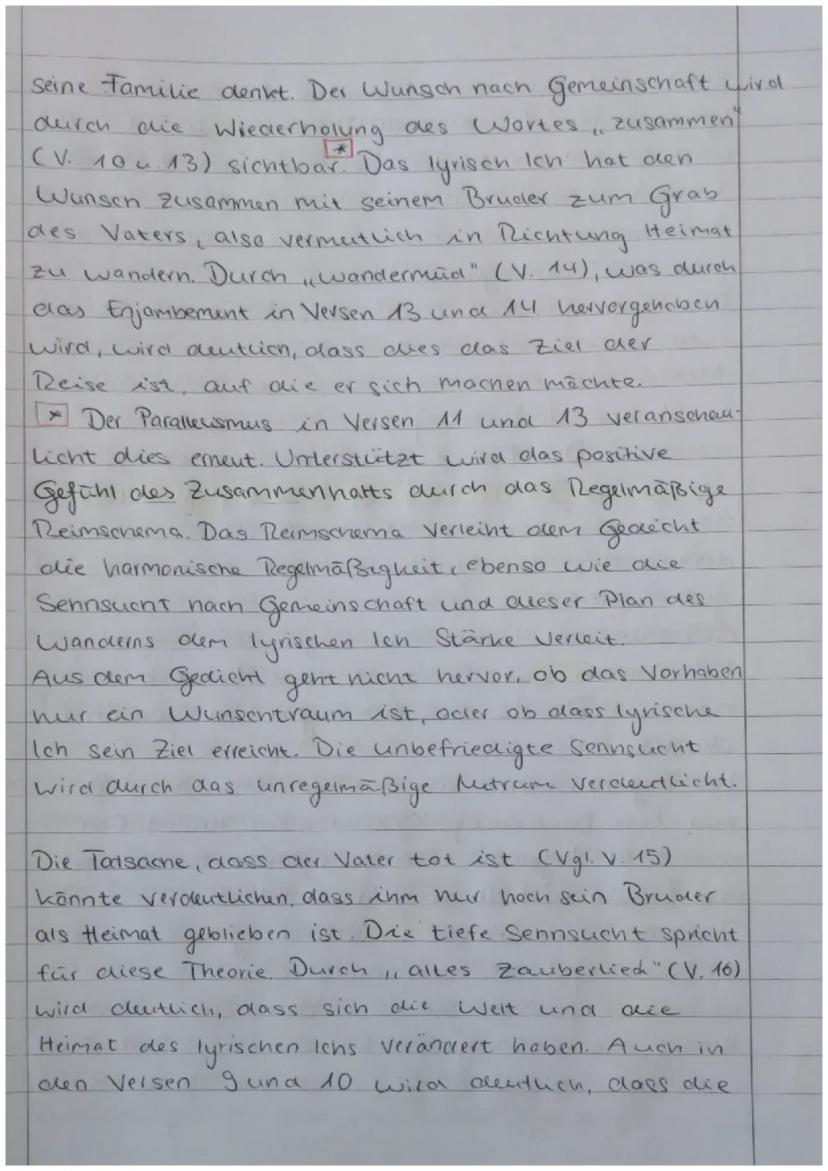 seine Familie denkt. Der Wunsch nach Gemeinschaft wird
durch die Wiederholung des Wortes „zusammen"
(V. 10 u. 13) sichtbar.* Das lyrisch Ich hat den
Wunsch zusammen mit seinem Bruder zum Grab
des Vaters, also vermutlich in Richtung Heimat
zu wandern. Durch „wandermüd" (V. 14), was durch
das Enjambement in Versen 13 und 14 hervorgehoben
wird, wird deutlich, dass dies das Ziel der
Reise ist, auf die er sich machen möchte.
* Der Parallelismus in Versen 11 und 13 veranschau-
licht dies erneut. Unterstützt wird das positive
Gefühl des Zusammenhalts durch das Regelmäßige
Reimschema. Das Reimschema verleiht dem Gedicht
die harmonische Regelmäßigkeit, ebenso wie die
Sehnsucht nach Gemeinschaft und dieser Plan des
Wanderns dem lyrischen Ich Stärke verleit.
Aus dem Gedicht geht nicht hervor, ob das Vorhaben
nur ein Wunschtraum ist, oder ob dass lyrische
Ich sein Ziel erreicht. Die unbefriedigte Sehnsucht
wird durch das unregelmäßige Metrum verdeutlicht.
Die Tatsache, dass der Vater tot ist (Vgl. V. 15)
könnte verdeutlichen, dass ihm nur noch sein Bruder
als Heimat geblieben ist. Die tiefe Sehnsucht spricht
für diese Theorie. Durch „altes Zauberlied" (V. 16)
wird deutlich, dass sich die Welt und die
Heimat des lyrischen Ichs verändert haben. Auch in
den Versen 9 und 10 wird deutlich, dass die